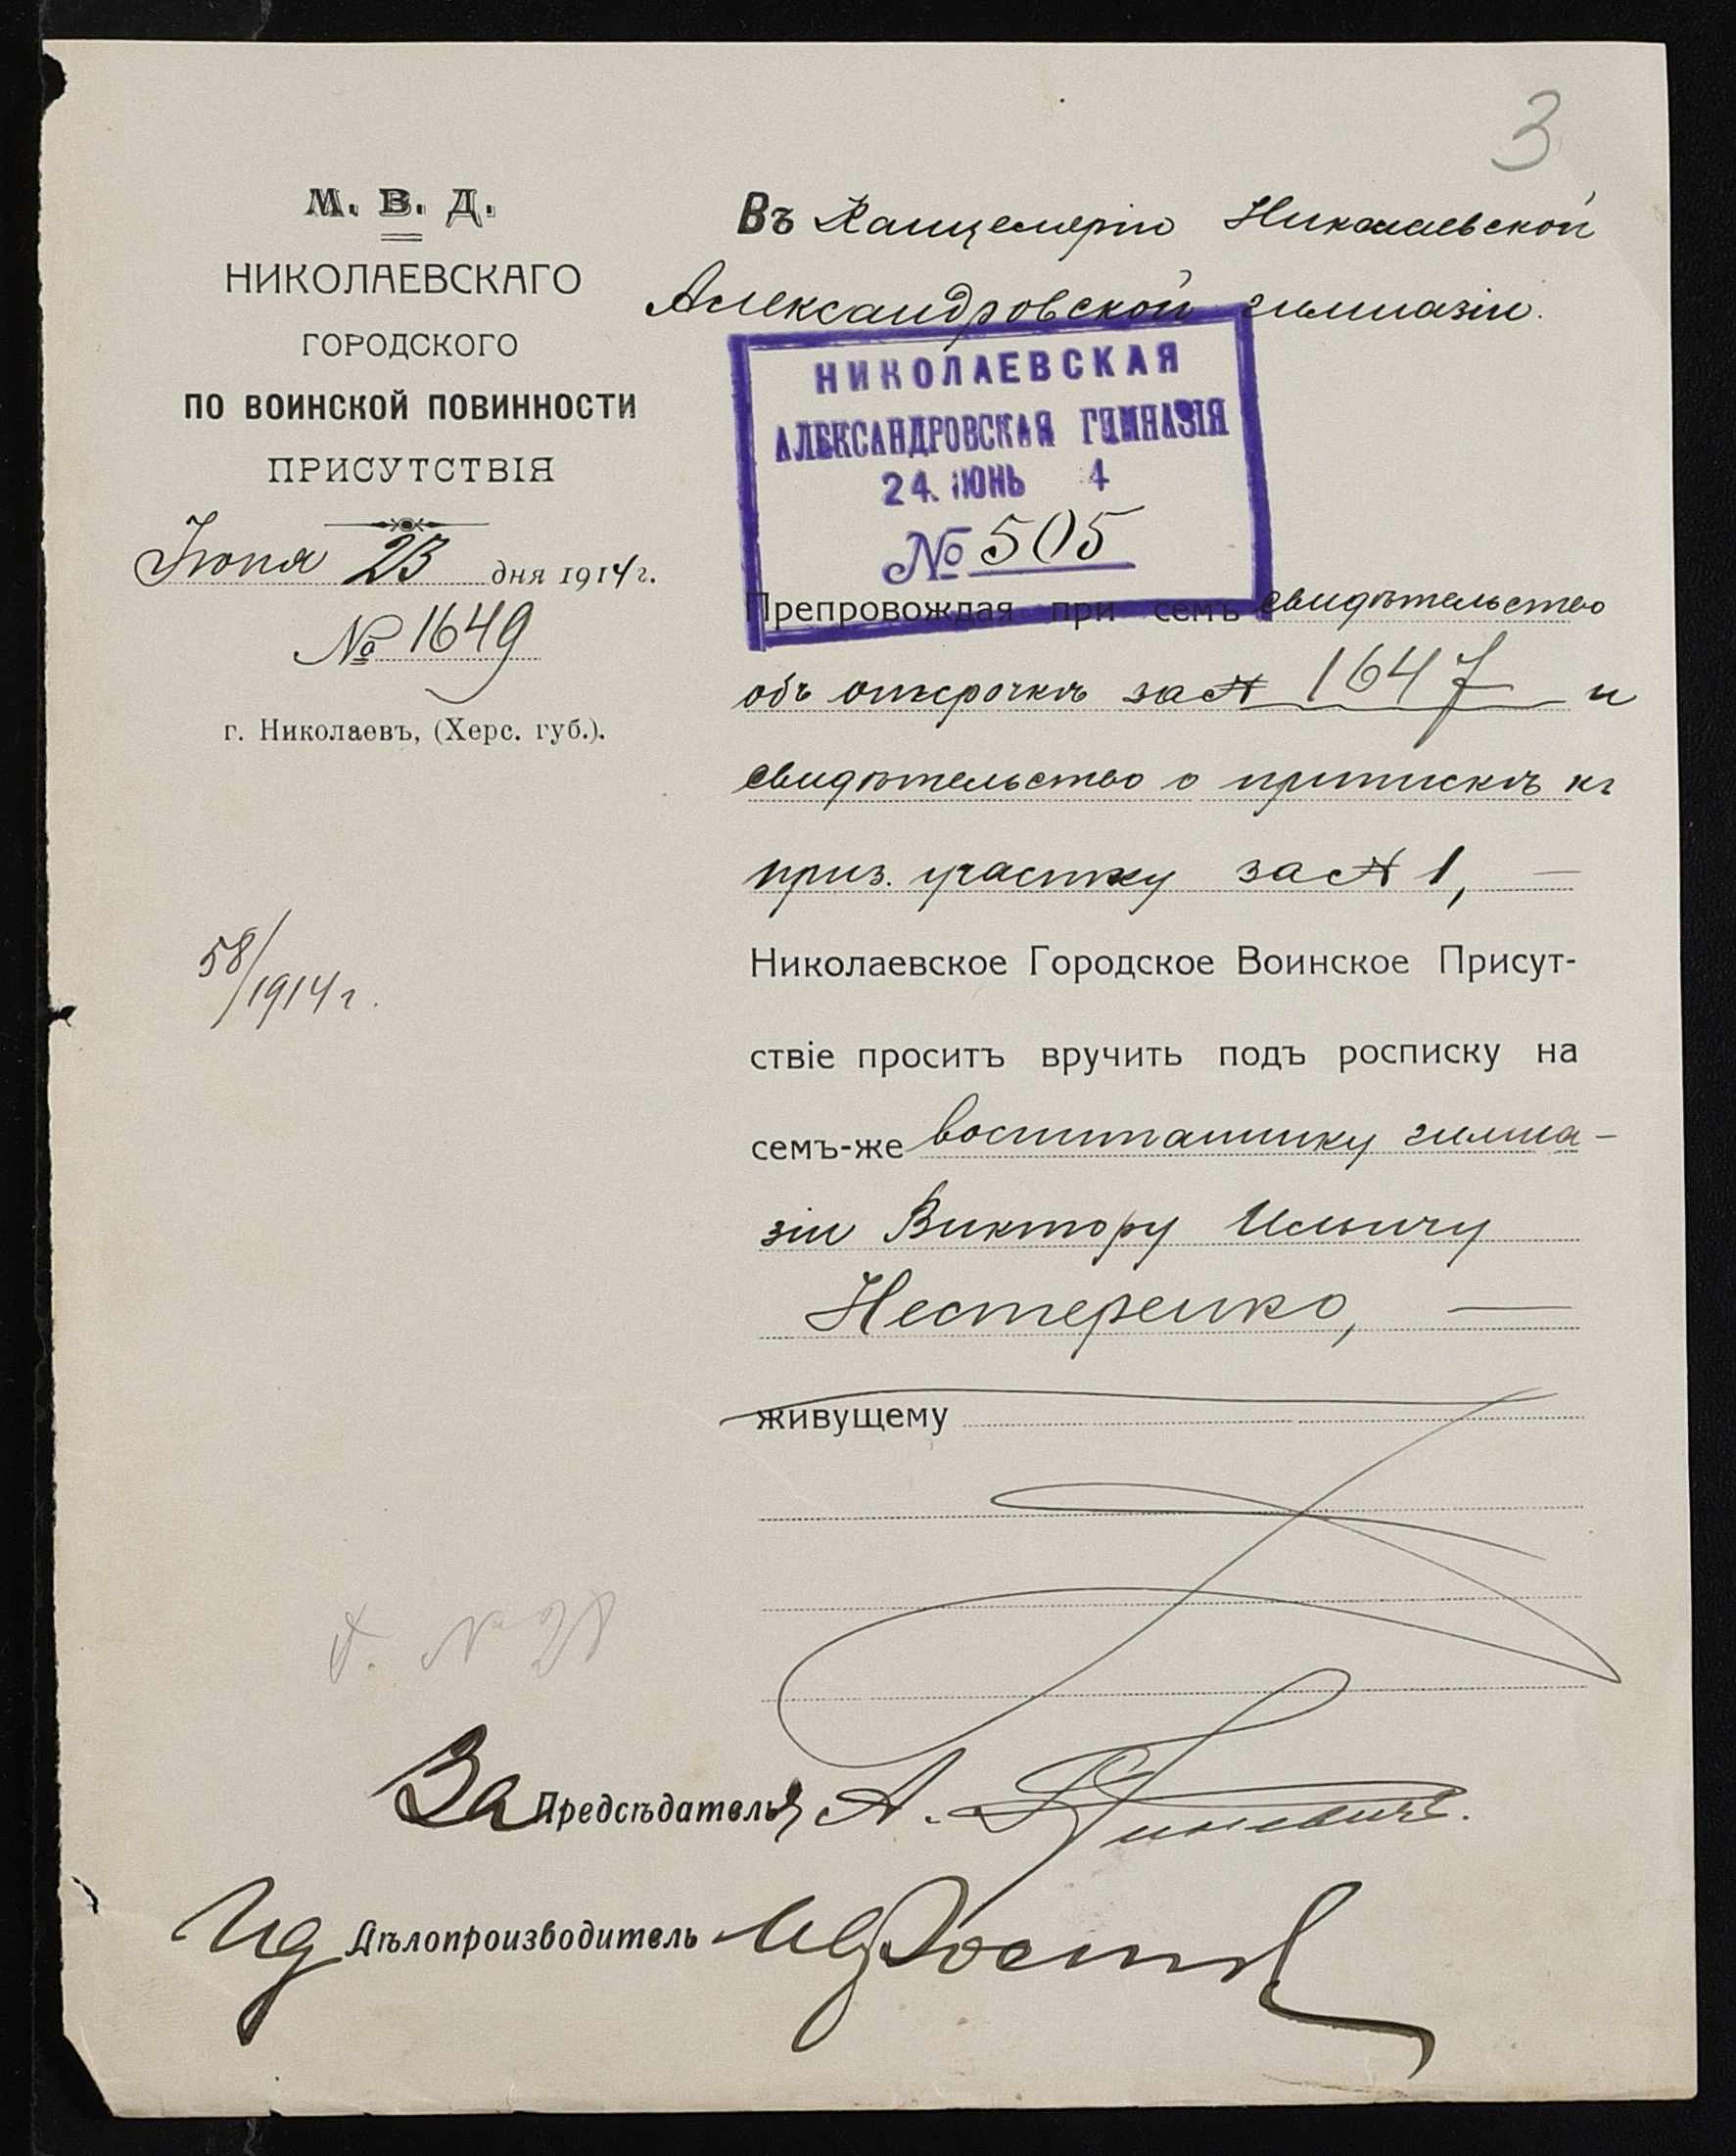 3
М. В. Д.
НИКОЛАЕВСКАГО
ГОРОДСКОГО
ПО ВОИНСКОЙ ПОВИННОСТИ
ПРИСУТСТВІЯ
Іюня 23 дня 1914 г.
№ 1649
г. Николаевъ, (Херс. губ.).
58/1914 г.
Въ Канцелярію Николаевской
Александровской гимназіи.
НИКОЛАЕВСКАЯ
АЛЕКСАНДРОВСКАЯ ГИМНАЗІЯ
24. ІЮНЬ 4
№ 505
Препровождая при семъ свидѣтельство
объ отсрочкѣ за № 1647 и
свидѣтельство о припискѣ къ
приз. участку за № 1, —
Николаевское Городское Воинское Присут-
ствіе проситъ вручить подъ росписку на
семъ-же воспитаннику гимна-
зіи Виктору Ильичу
Нестеренко, —
живущему
За Предсѣдателя А.
И д Дѣлопроизводитель